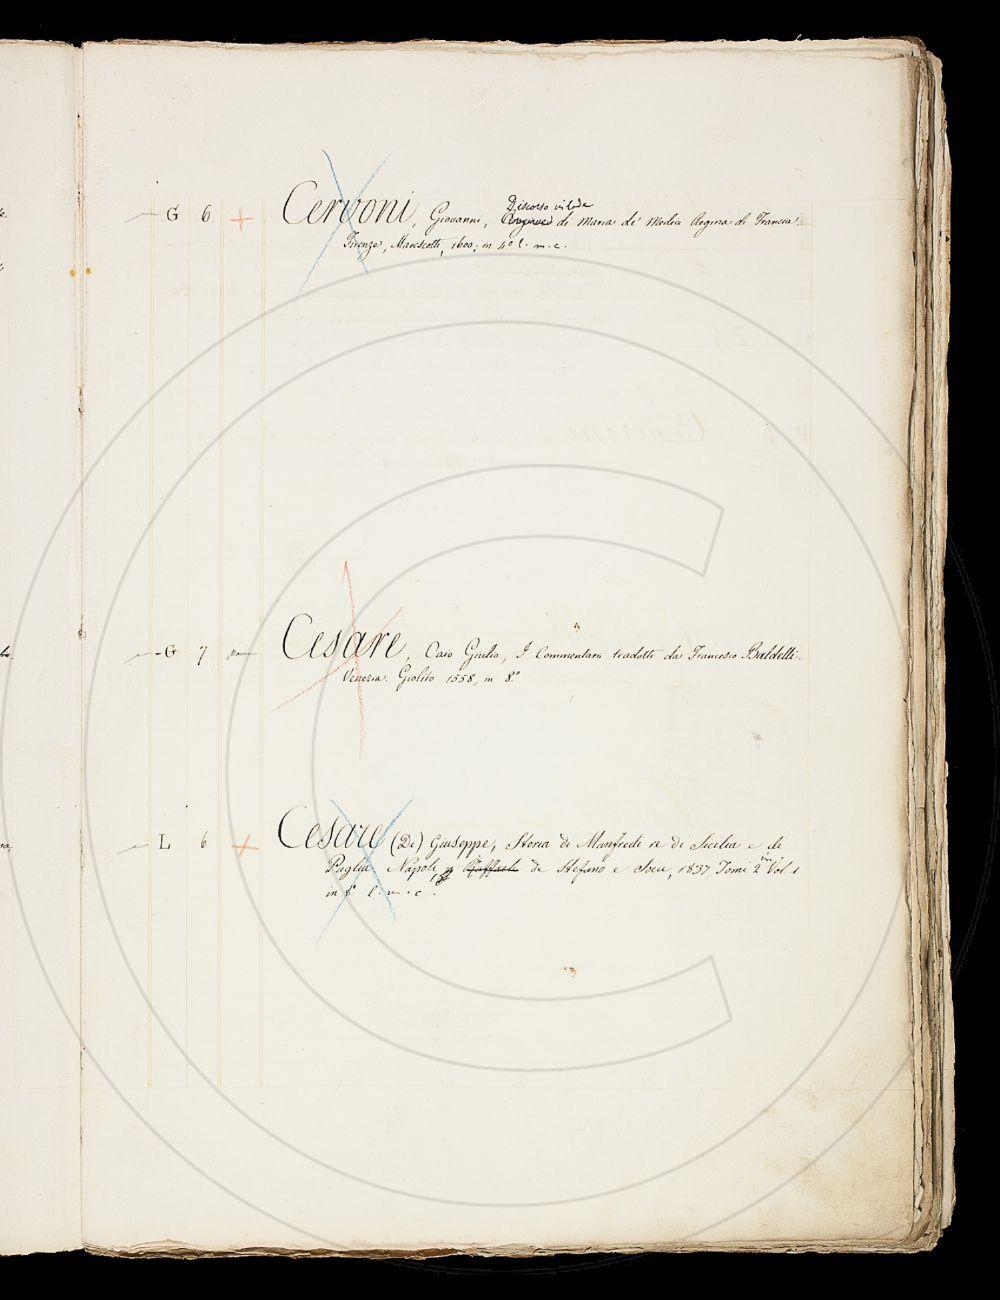 G 6 + Cervoni, Giovanni, Discorso di Maria de' Medici Regina di Francia.
Firenze, Marescotti, 1600; in 4º l. m. c.
G 7 Cesare, Caio Giulio, I Commentarii tradotti da Francesco Baldelli.
Venezia. Giolito 1558, in 8.º
L 6 + Cesare (Di) Giuseppe, Storia di Manfredi re di Sicilia e di
Puglia. Napoli, Raffaele de Stefano e Socii, 1837 Tomi 2 in Vol. 1
in 8º l. m. c.